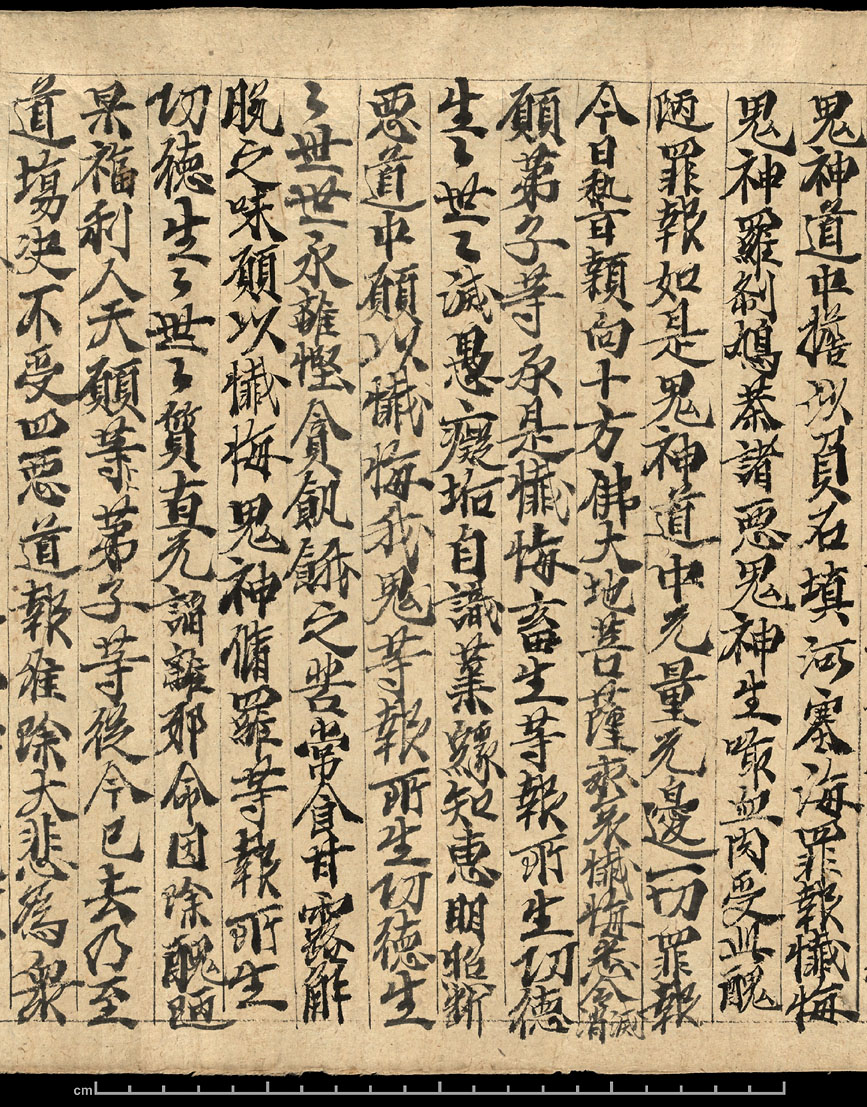 鬼神道中擔沙負石填河塞海罪報懺悔
鬼神羅剎鳩荼諸惡鬼神生噉血肉受此醜
陋罪報如是鬼神道中无量无邊一切罪報
今日稽顙向十方佛大地菩薩求哀懺悔悉令消滅
願弟子等承是懺悔畜生等報所生切德
生〻世〻滅愚癡垢自識業緣知惠明照斷
惡道中願以懺悔我鬼等報所生切德生
〻世世永離慳貪飢餓之苦當食甘露解
脫之味願以懺悔鬼神脩羅等報所生
切德生〻世〻質直无諂離邪命因除醜陋
果福利人天願等弟子等從今已去乃至
道場決不受四惡道報唯除大悲為眾